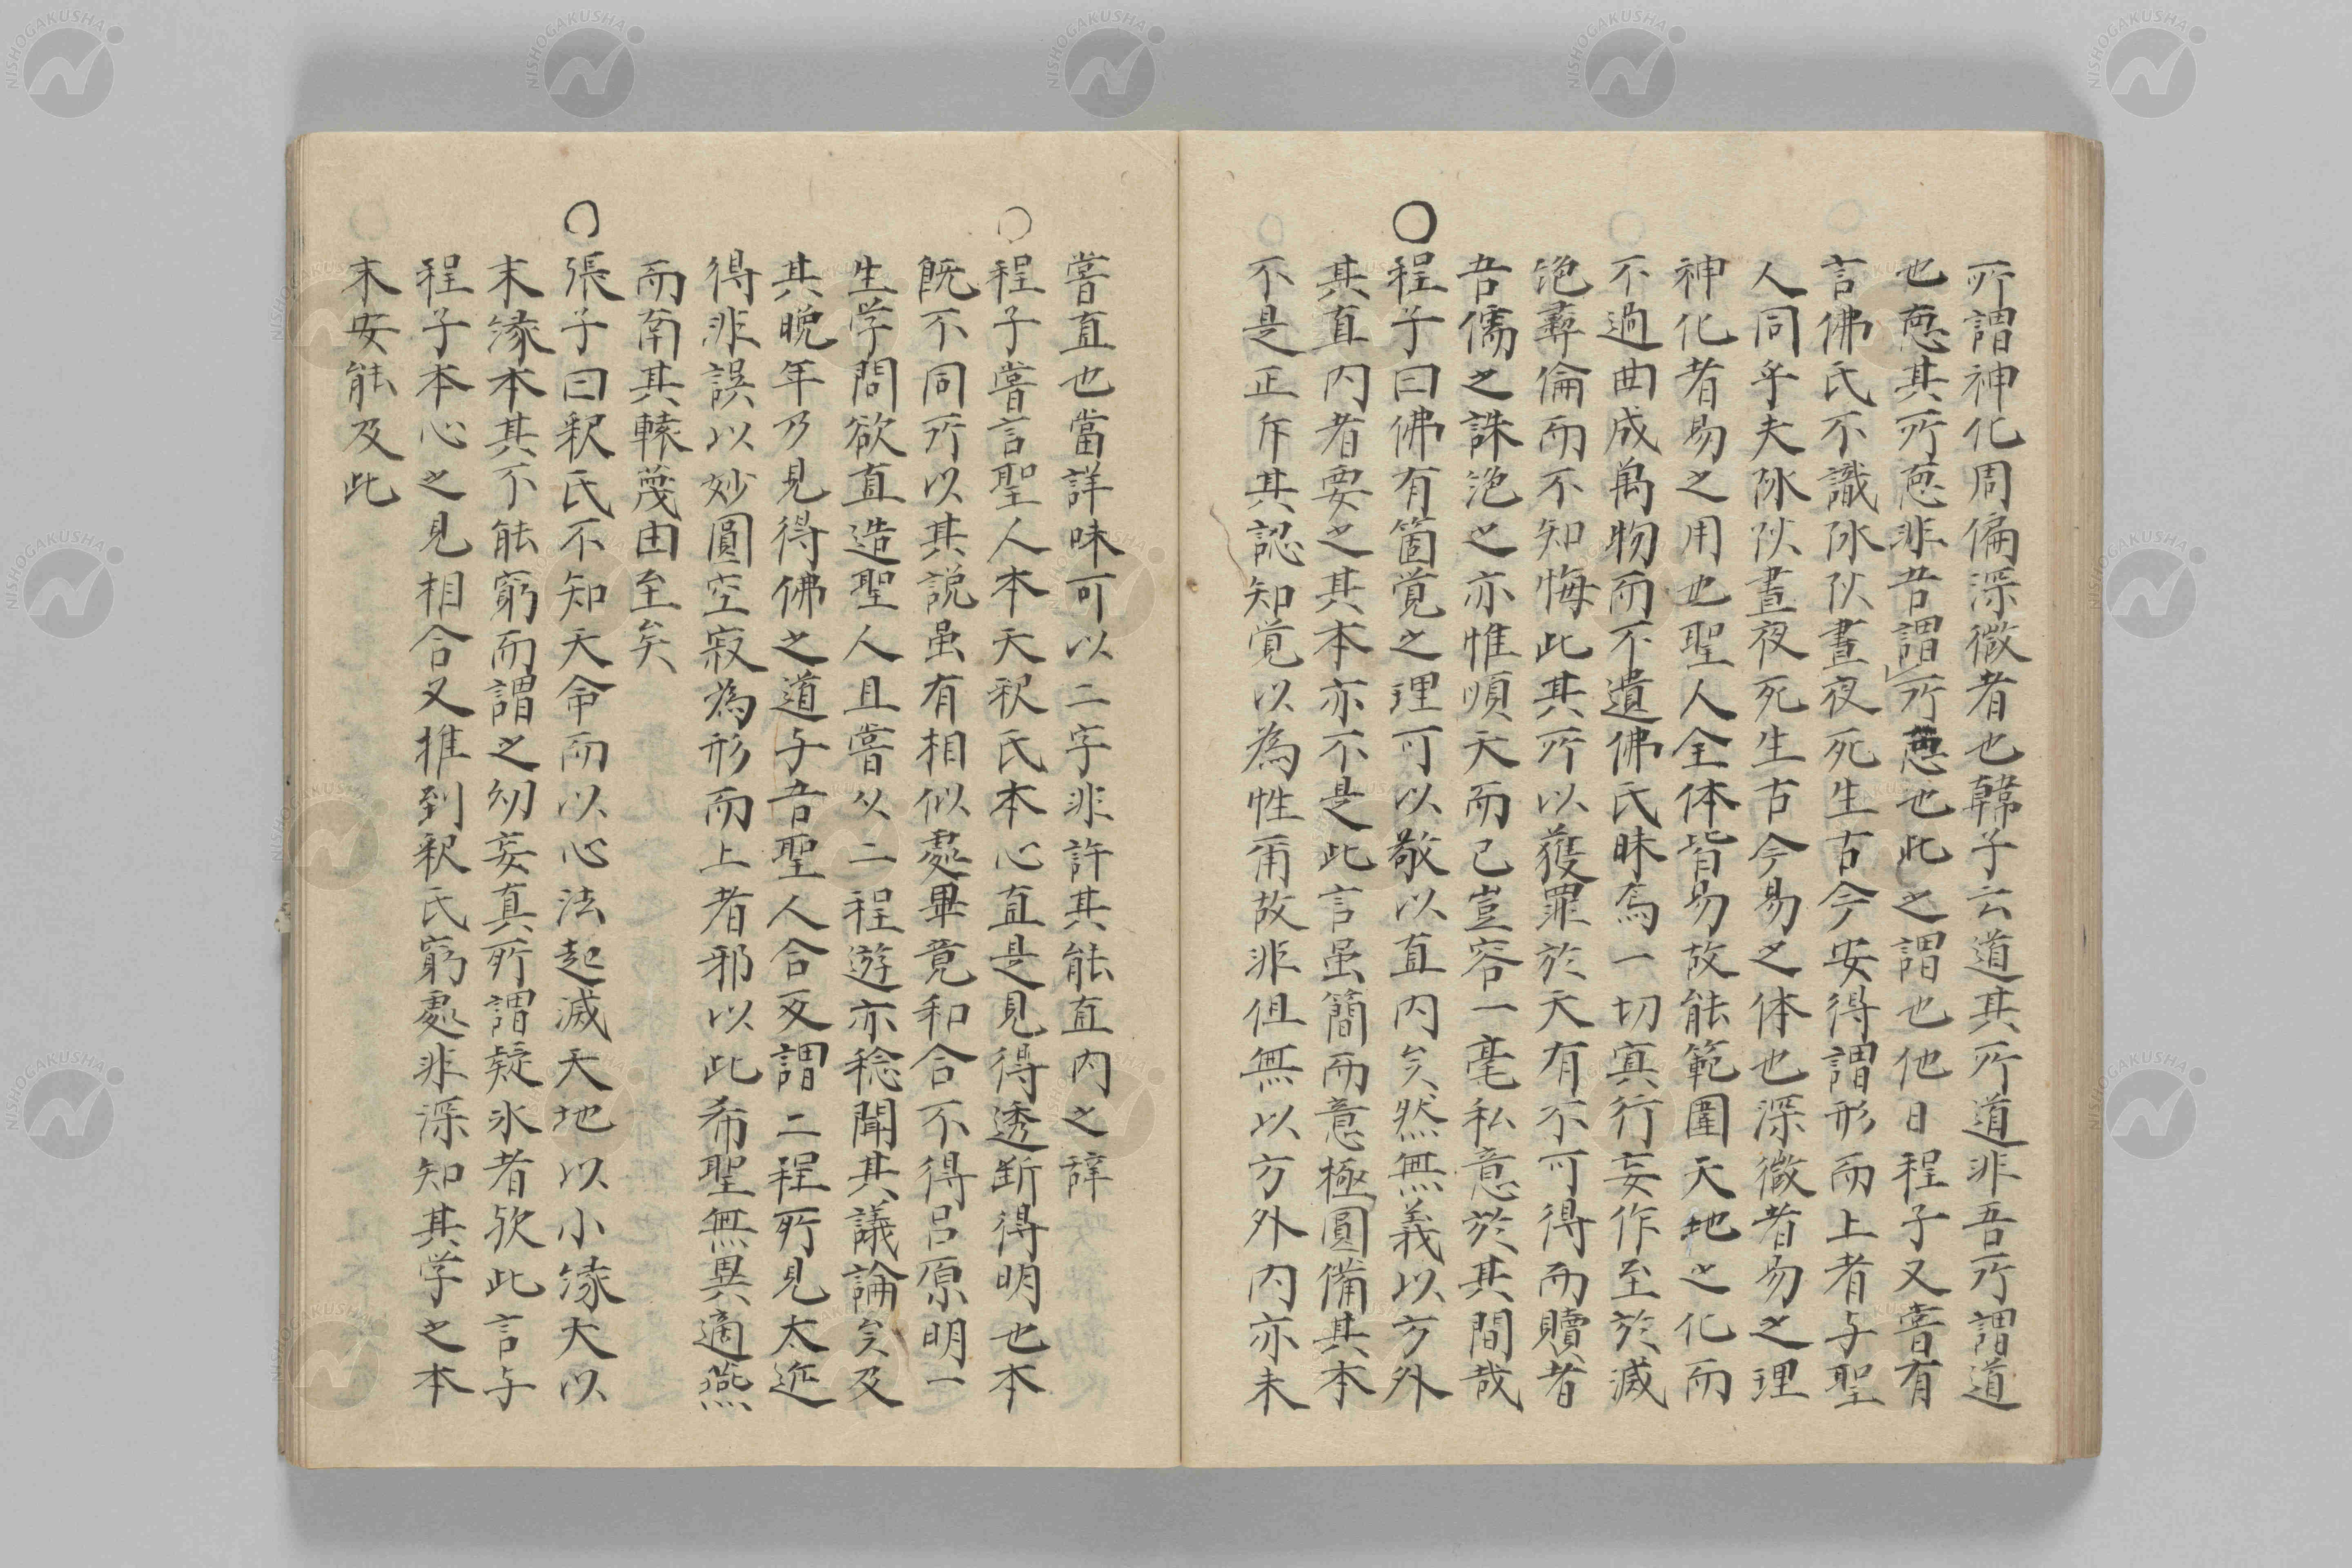 所謂神化周偏深微者也韓子云道其所道非吾所謂道
也悳其所悳非吾謂所悳也此之謂也他日程子又嘗有
言佛氏不識阥阦晝夜死生古今安得謂形而上者与聖
人同乎夫阥阦晝夜死生古今易之体也深微者易之理
神化者易之用也聖人全体皆易故能範圍天地之化而
不過曲成萬物而不遺佛氏昧焉一切冥行妄作至於滅
绝彛倫而不知悔此其所以獲罪於天有不可得而贖者
吾儒之誅绝之亦惟順天而已豈容一毫私意於其間哉
〇程子曰佛有箇覚之理可以敬以直内矣然無義以方外
其直内者要之其本亦不是此言虽簡而意極圓備其本
不是正斥其認知覚以為性甭故非但無以方外内亦未
嘗直也當詳味可以二字非許其能直内之辞
〇程子嘗言聖人本天釈氏本心直是見得透断得明也本
既不同所以其説虽有相似處畢竟和合不得吕原明一
生学問欲直造聖人且嘗从二程遊亦稔聞其議論矣及
其晩年乃見得佛之道与吾聖人合反謂二程所見太近
得非誤以妙圓空寂為形而上者邪以此希聖無異適燕
而南其轅蔑由至矣
〇張子曰釈氏不知天命而以心法起滅天地以小縁大以
末縁本其不能窮而謂之幻妄真所謂疑氷者欤此言与
程子本心之見相合又推到釈氏窮處非深知其学之本
末安能及此